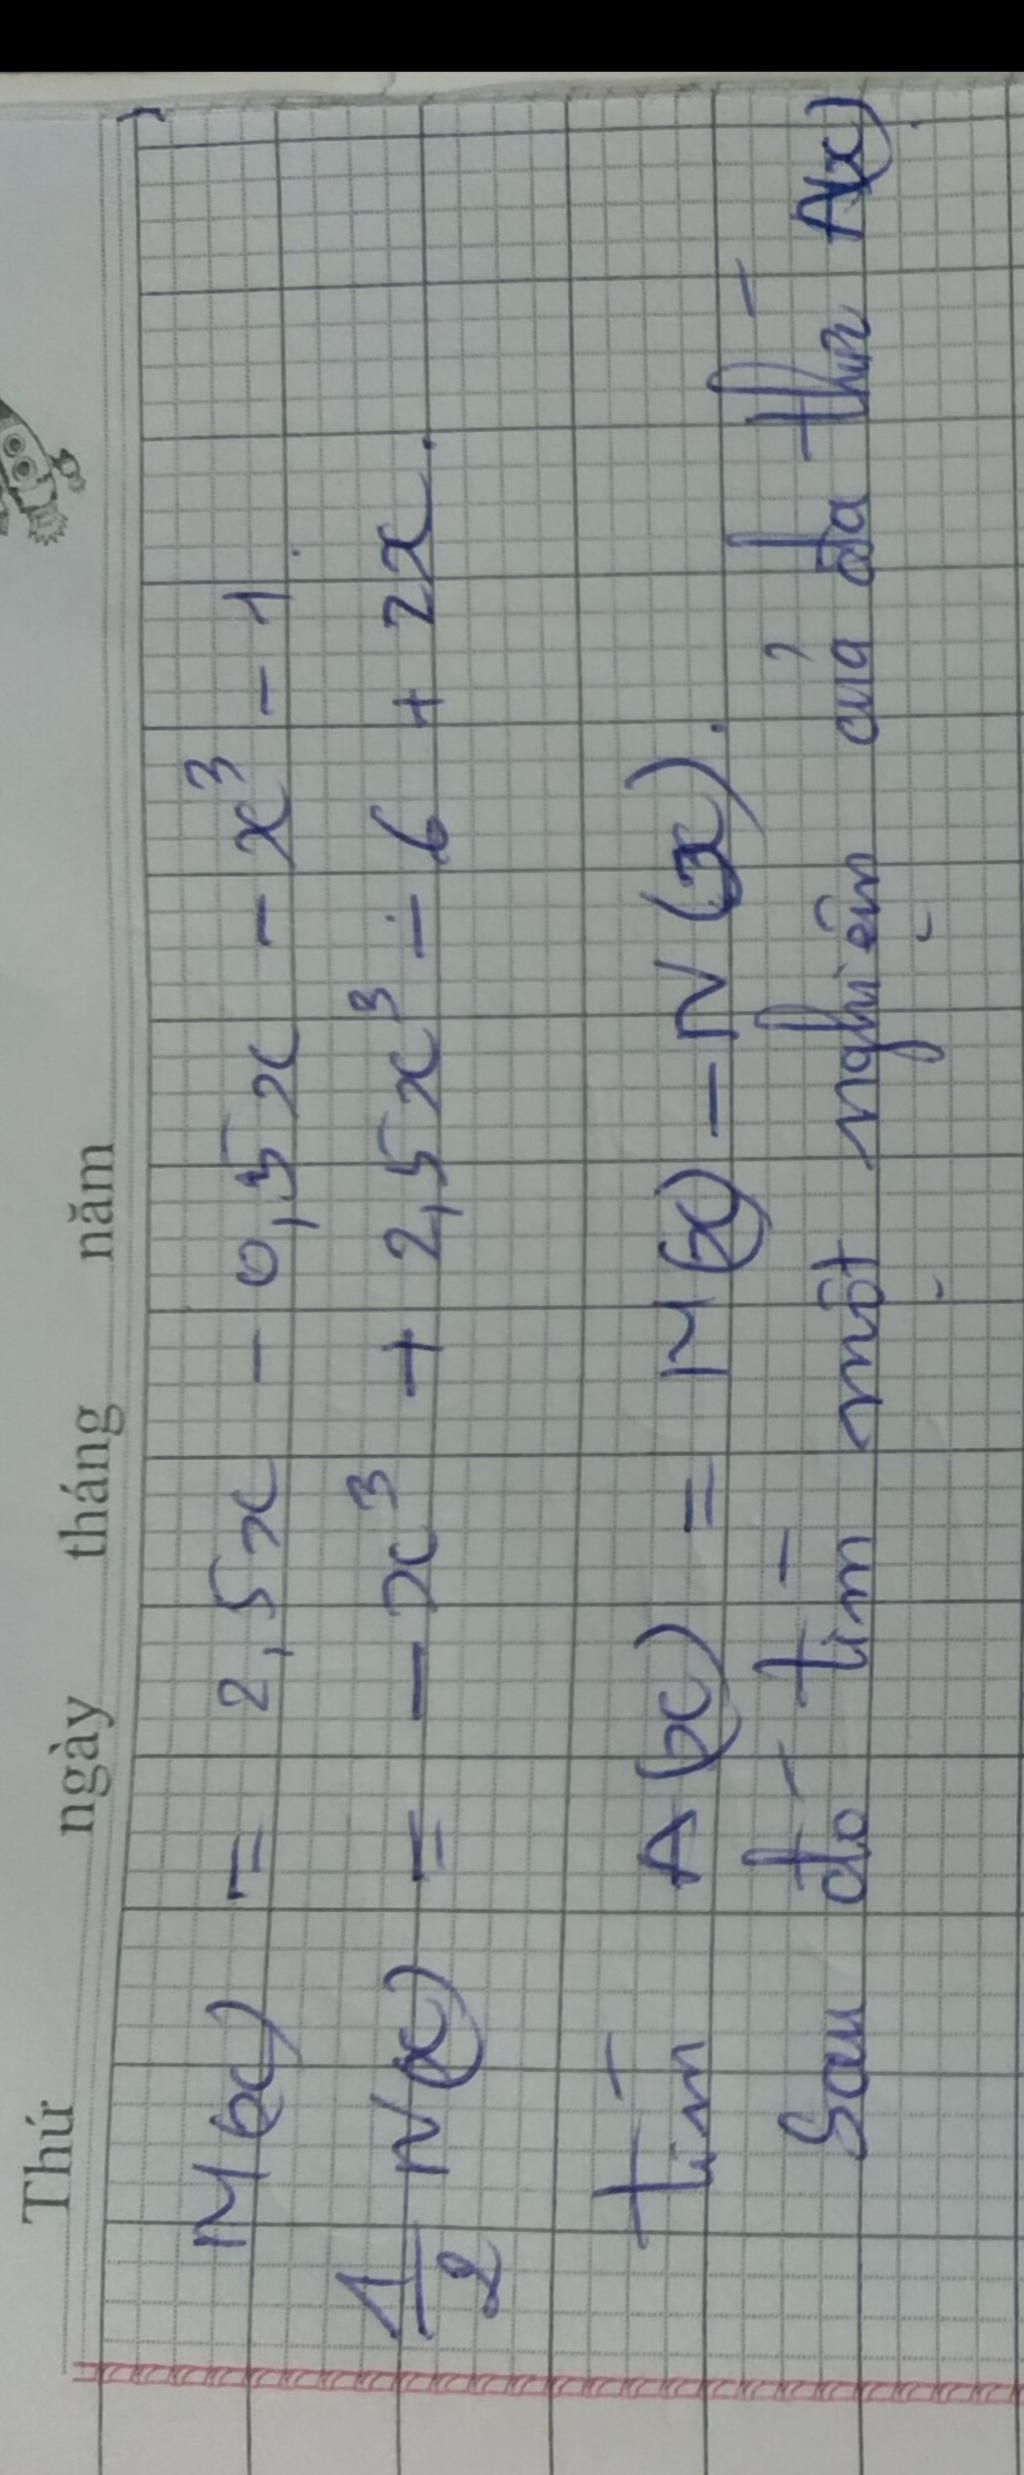 Thứ ngày tháng năm
M(x) = 2,5x - 0,5x - x³ - 1
1/2 N(x) = - x³ + 2,5x³ - 6 + 2x.
Tìm A(x) = M(x) - N(x).
Sau đó tìm một nghiệm của đa thức A(x).